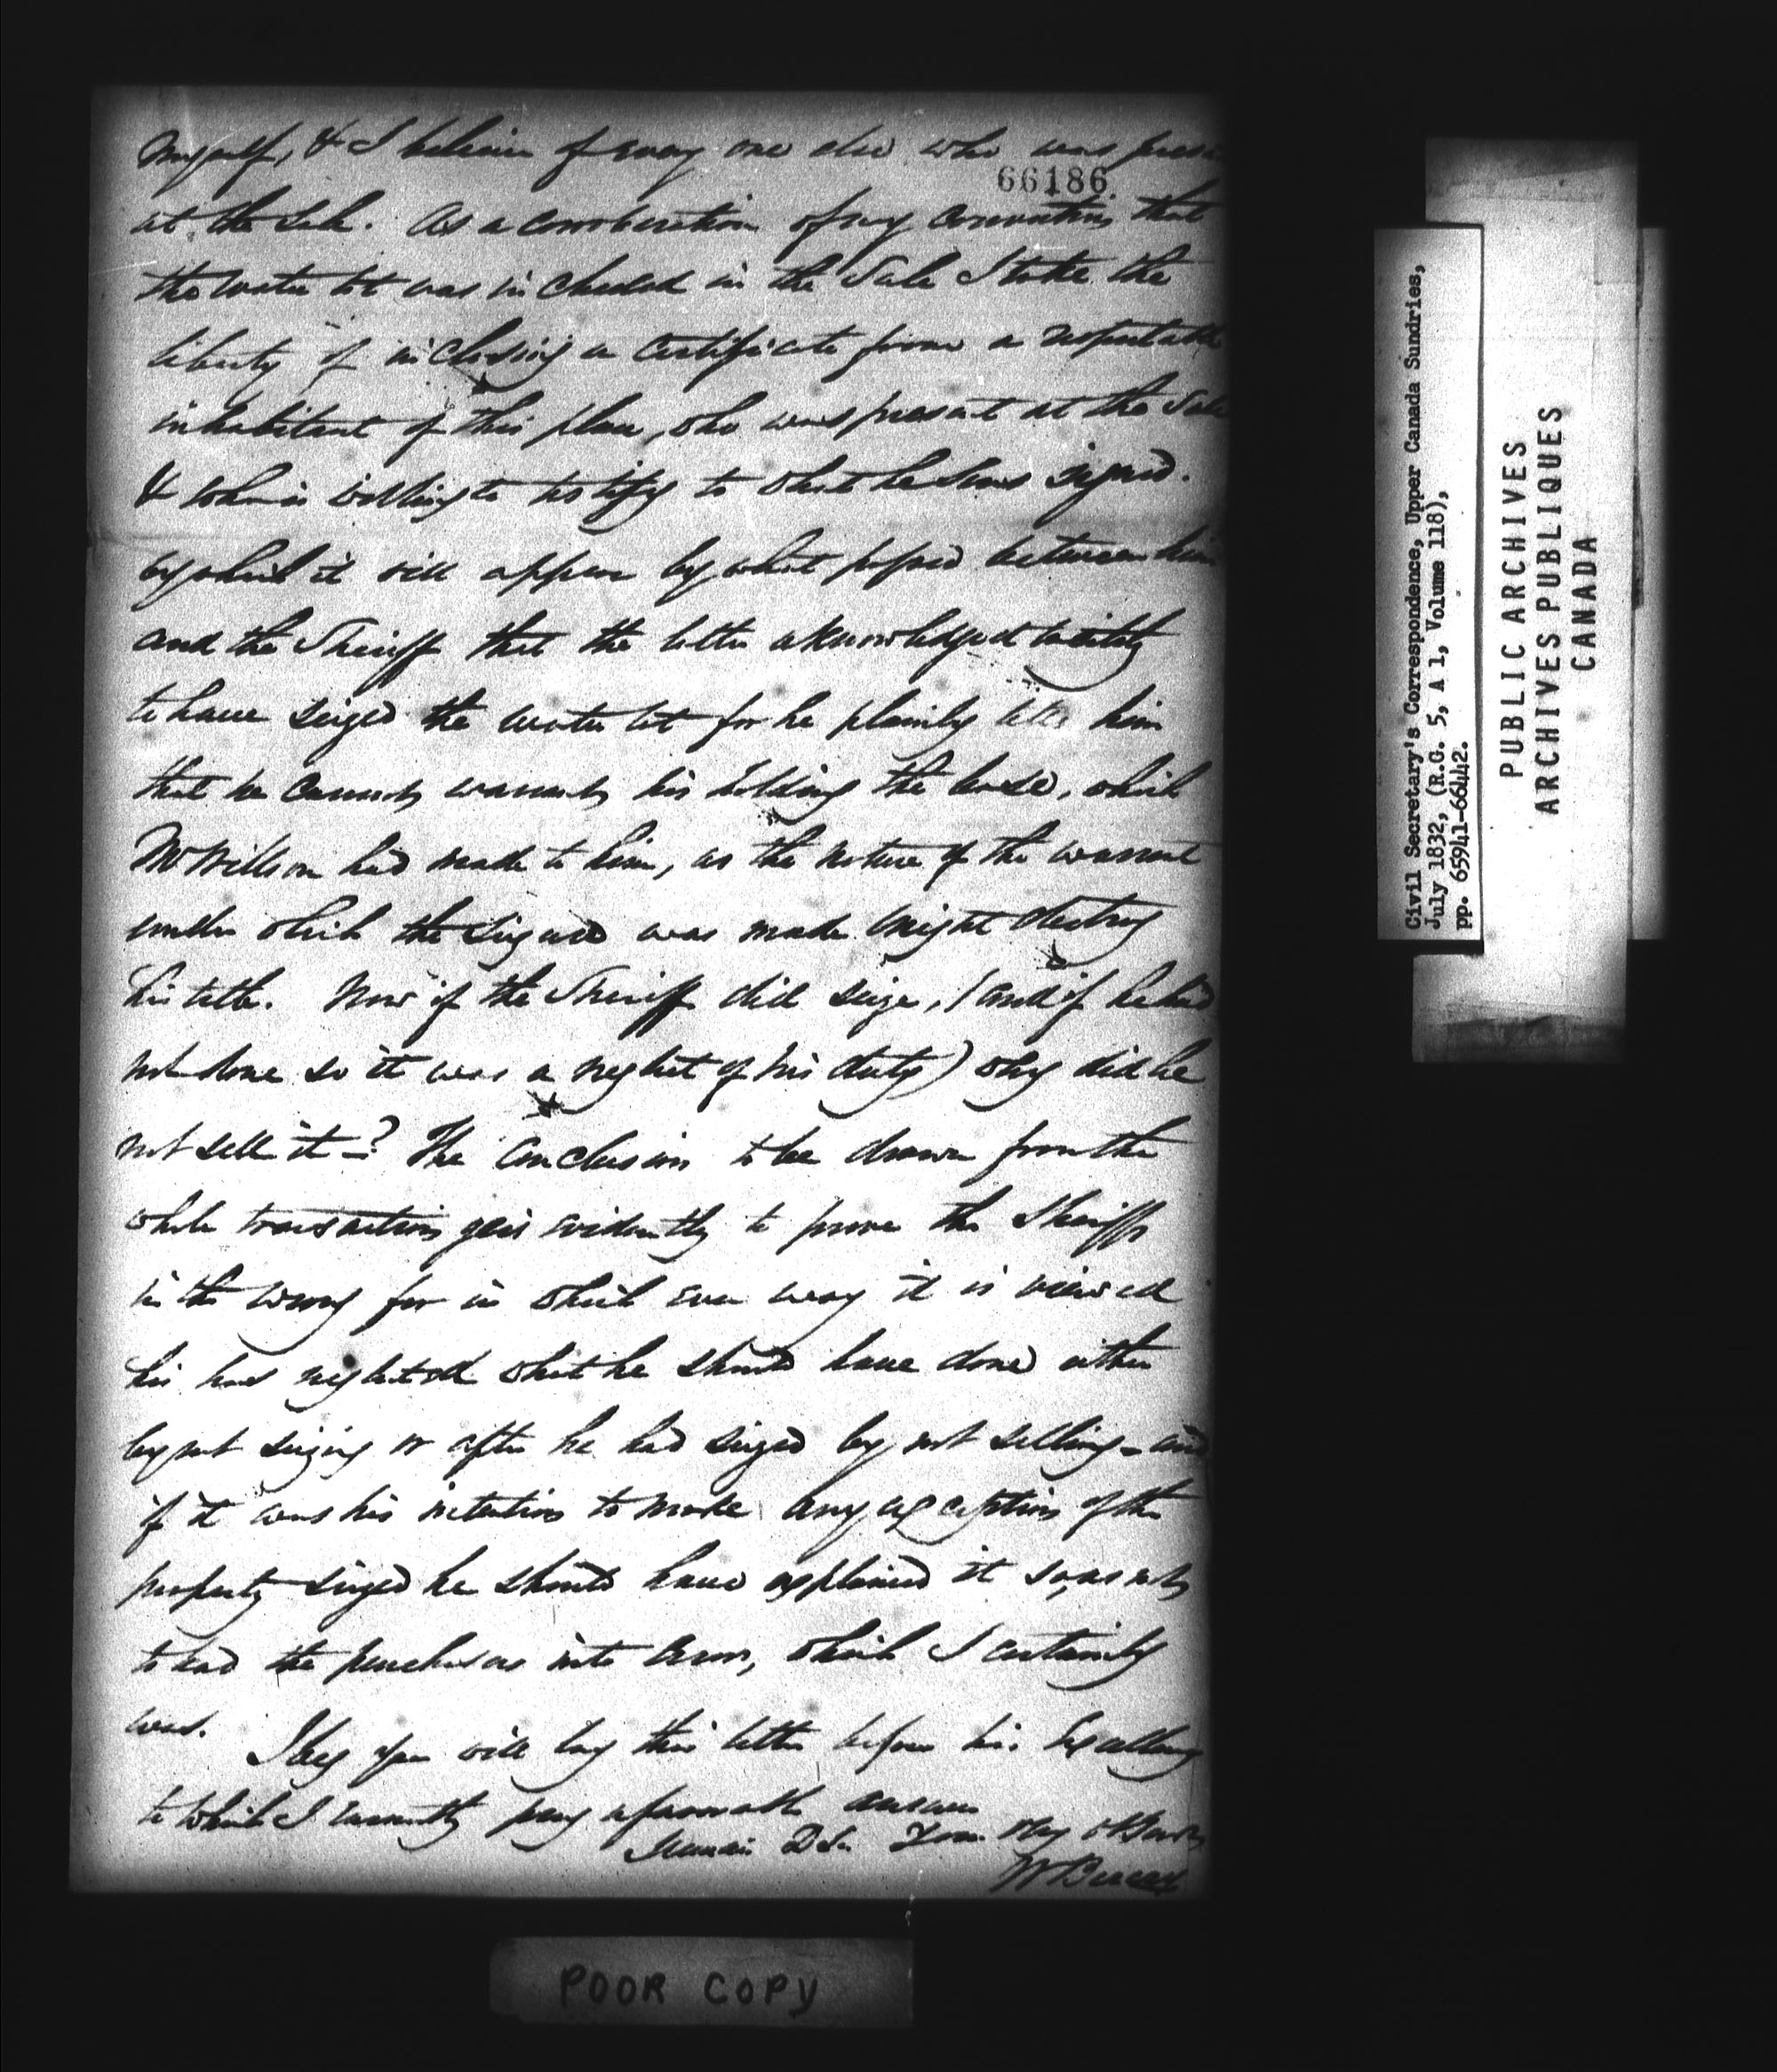 myself, & I believe of every one else who was
66186
at the Sale. As a corroboration of my conviction that
the water lot was included in the Sale I take the
liberty of inclosing a Certificate from a respectable
inhabitant of this place, who was present at the Sale
& who is willing to testify to what he has signed.
by which it will appear by what passed between him
and the Sheriff that the latter acknowledged tacitly
to have seized the water lot for he plainly tells him
that he cannot warrant his holding the lease, which
Mr Willson had made to him, as the nature of the warrant
under which the seizure was made might destroy
his title. Now if the Sheriff did seize, (and if he had
not done so it was a neglect of his duty) why did he
not sell it—? The Conclusion to be drawn from the
whole transaction goes evidently to prove the Sheriff
in the wrong for in which ever way it is viewed
his has neglected what he should have done either
by not seizing or after he had seized by not selling – and
if it was his intention to make any exception of the
property seized he should have explained it so, as not
to lead the purchasers into error, which I certainly
was.
I beg you will lay this letter before his Excellency
to which I earnestly pray a favourable answer
Your
W
POOR COPY
Civil Secretary's Correspondence, Upper Canada Sundries,
July 1832, (R.G. 5, A 1, Volume 118),
pp. 65941-66442.
PUBLIC ARCHIVES
ARCHIVES PUBLIQUES
CANADA